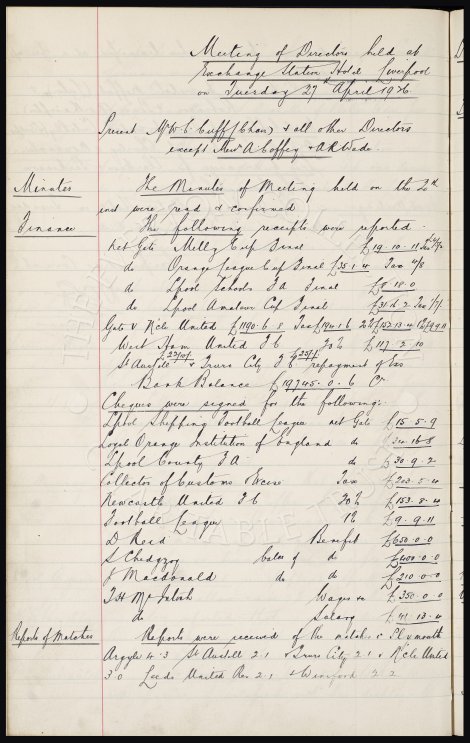 Meeting of Directors held at
Exchange Station Hotel Liverpool
on Tuesday 27 April 1926.
Present Mr W. C. Cuff (Chair) & all other Directors
except Messrs A Coffey & A R Wade.
Minutes
The Minutes of Meeting held on the 20th
inst were read & confirmed
Finance
The following receipts were reported.
Net Gate Melly Cup Final £19.10.11
do Orange League Cup Final £35.1.4 Tax 4/8
do Lpool Schools F A Final £8.18.0
do Lpool Amateur Cup Final £31.6.2 Tax
Gate v Ncle United £1190.6.8 Tax £194.1.6 £152.13.4
West Ham United F C 20% £117.2.10
St Austell & Truro City F C repayment of
Bank Balance £19745.0.6 Cr
Cheques were signed for the following:-
Lpool Shipping Football League net Gate £15.5.9
Loyal Orange Institution of England do £34.16.8
Lpool County F A do £30.9.2
Collector of Customs & Excise Tax £203.5.4
Newcastle United F C 20% £153.8.4
Football League 1% £9.9.11
D Reid Benefit £650.0.0
S Chedgzoy balce of do £400.0.0
J Macdonald do do £210.0.0
T H McIntosh Wages &c £350.0.0
do Salary £41.13.4
Reports of Matches
Reports were received of the matches v Plymouth
Argyle 4-3 St Austell 2-1 & Truro City 2-1 & Ncle United
3-0 Leeds United Res 2-1 & Winsford 2-2